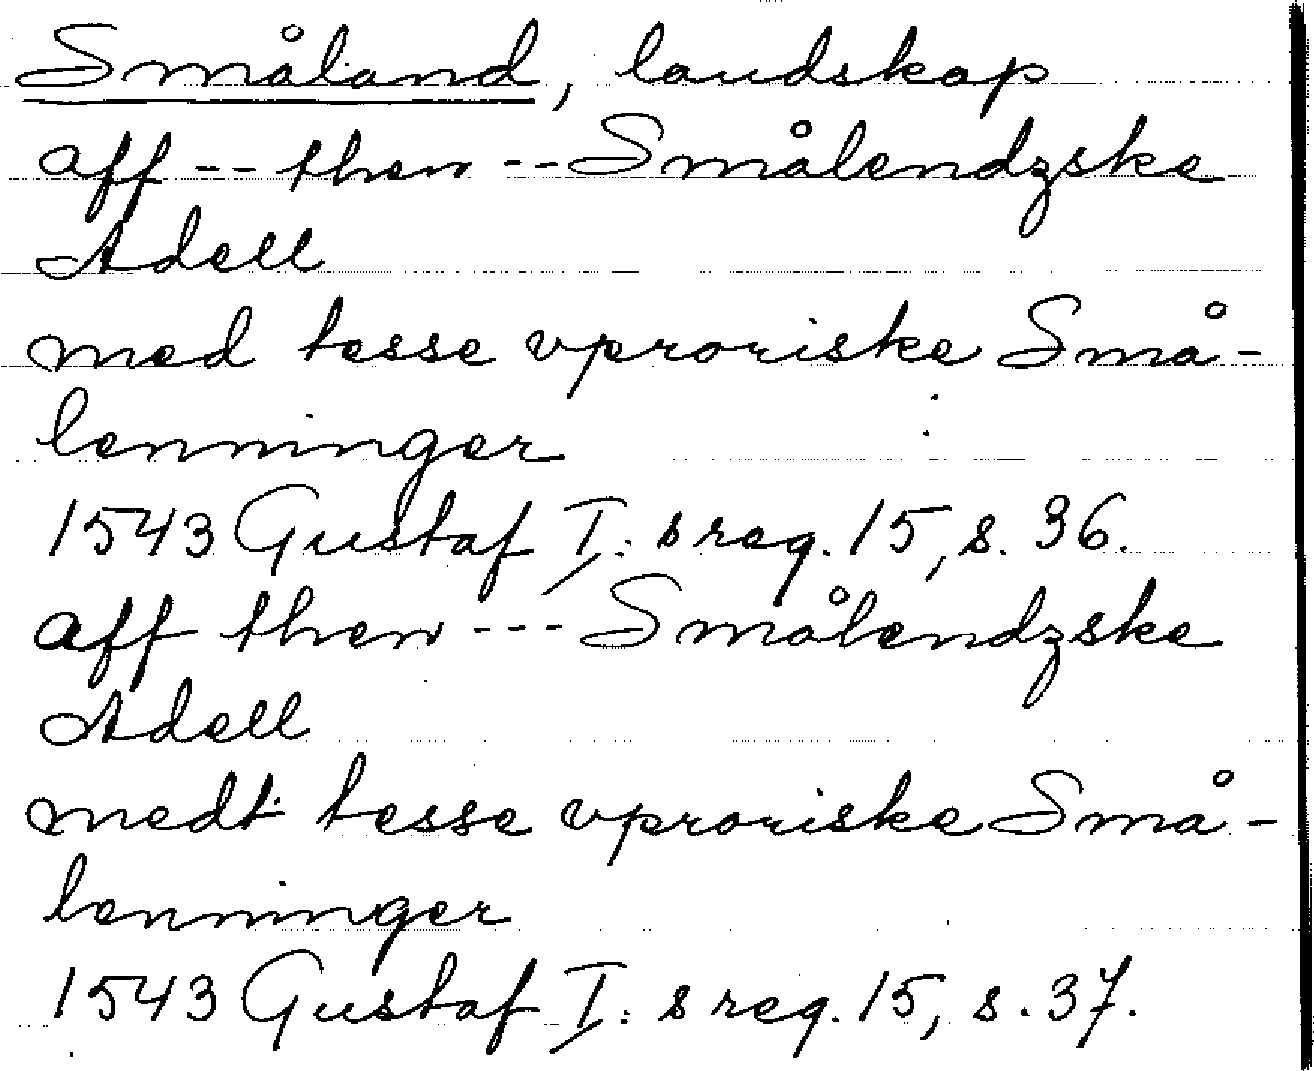 Småland, landskap
aff -- then -- Smålendzske
Adell
med tesse vproriske Små-
lenninger
1543 Gustaf I: s reg. 15, s. 36.
aff then --- Smålendzske
Adell
medt tesse vproriske Små-
lenninger
1543 Gustaf I: s reg. 15, s. 37.